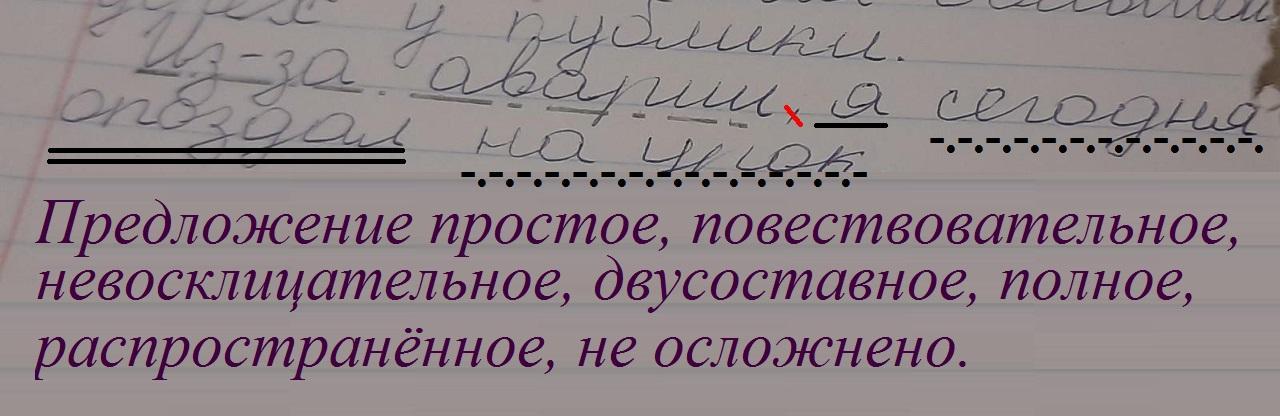 успех у публики.
Из-за аварии, я сегодня
опоздал на урок
Предложение простое, повествовательное,
невосклицательное, двусоставное, полное,
распространённое, не осложнено.